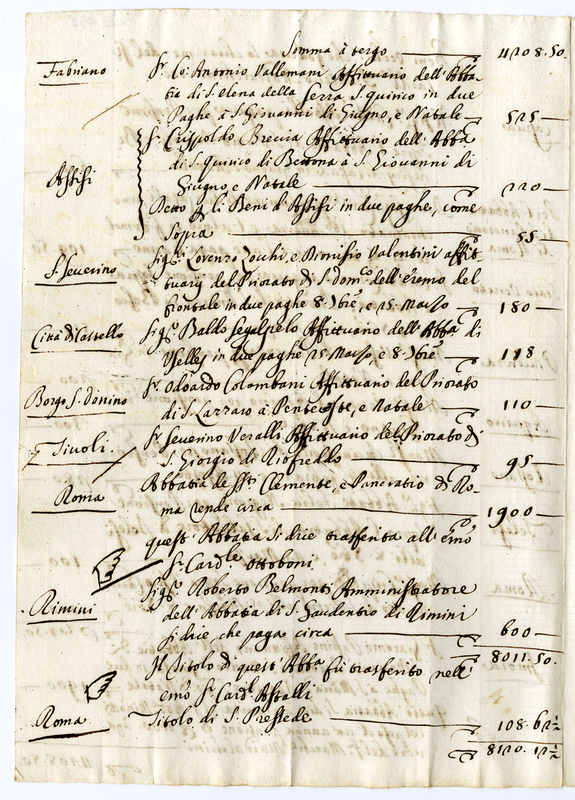 Somma à tergo 4208.50.
Fabriano Sr. Co: Antonio Vallemani Affittuario dell'Abba-
tia di S. Elena della Serra S. quirico in due
Paghe à S. Giovanni di Giugno, e Natale 525
Sr. Crispoldo Brecia Affittuario dell'Abba.
di S. quirico di Bettona à S. Giovanni di
Assisi Giugno, e Natale 220
Detto p. li Beni d'Assisi in due paghe, come
sopra 55
S. Severino Sigri. Lorenzo Zocchi, e Dionisio Valentini affit-
tuarij del Priorato di S. Domco. dell'eremo del
frontale in due paghe 8. 7bre, e 25. Marzo 180
Città di Castello Sigr. Baldo Affittuario dell'Abba. di
Uselle in due paghe 25 Marzo, e 8. 7bre 118
Borgo S. Donino Sr. Odoardo Colombani Affittuario del Priorato
di S. Lazzaro à Pentecoste, e Natale 110
Tivoli. Sr. Severino Veralli Affittuario del Priorato di
S. Giorgio di Riofreddo 95
Roma Abbatia de SSti. Clemente, e Pancratio di Ro-
ma rende circa 1900
quest'Abbatia si dice trasferita all'emo
Sr. Cardle. Ottoboni
Sigr. Roberto Belmonti Amministratore
Rimini dell'Abbatia di S. Gaudentio di Rimini
si dice, che paga circa 600
8011.50.
Il Titolo di quest'Abba. fù trasferito nell'
emo Sr. Cardl. Astalli
Roma Titolo di S. Pressede 108.62½
8120.12½